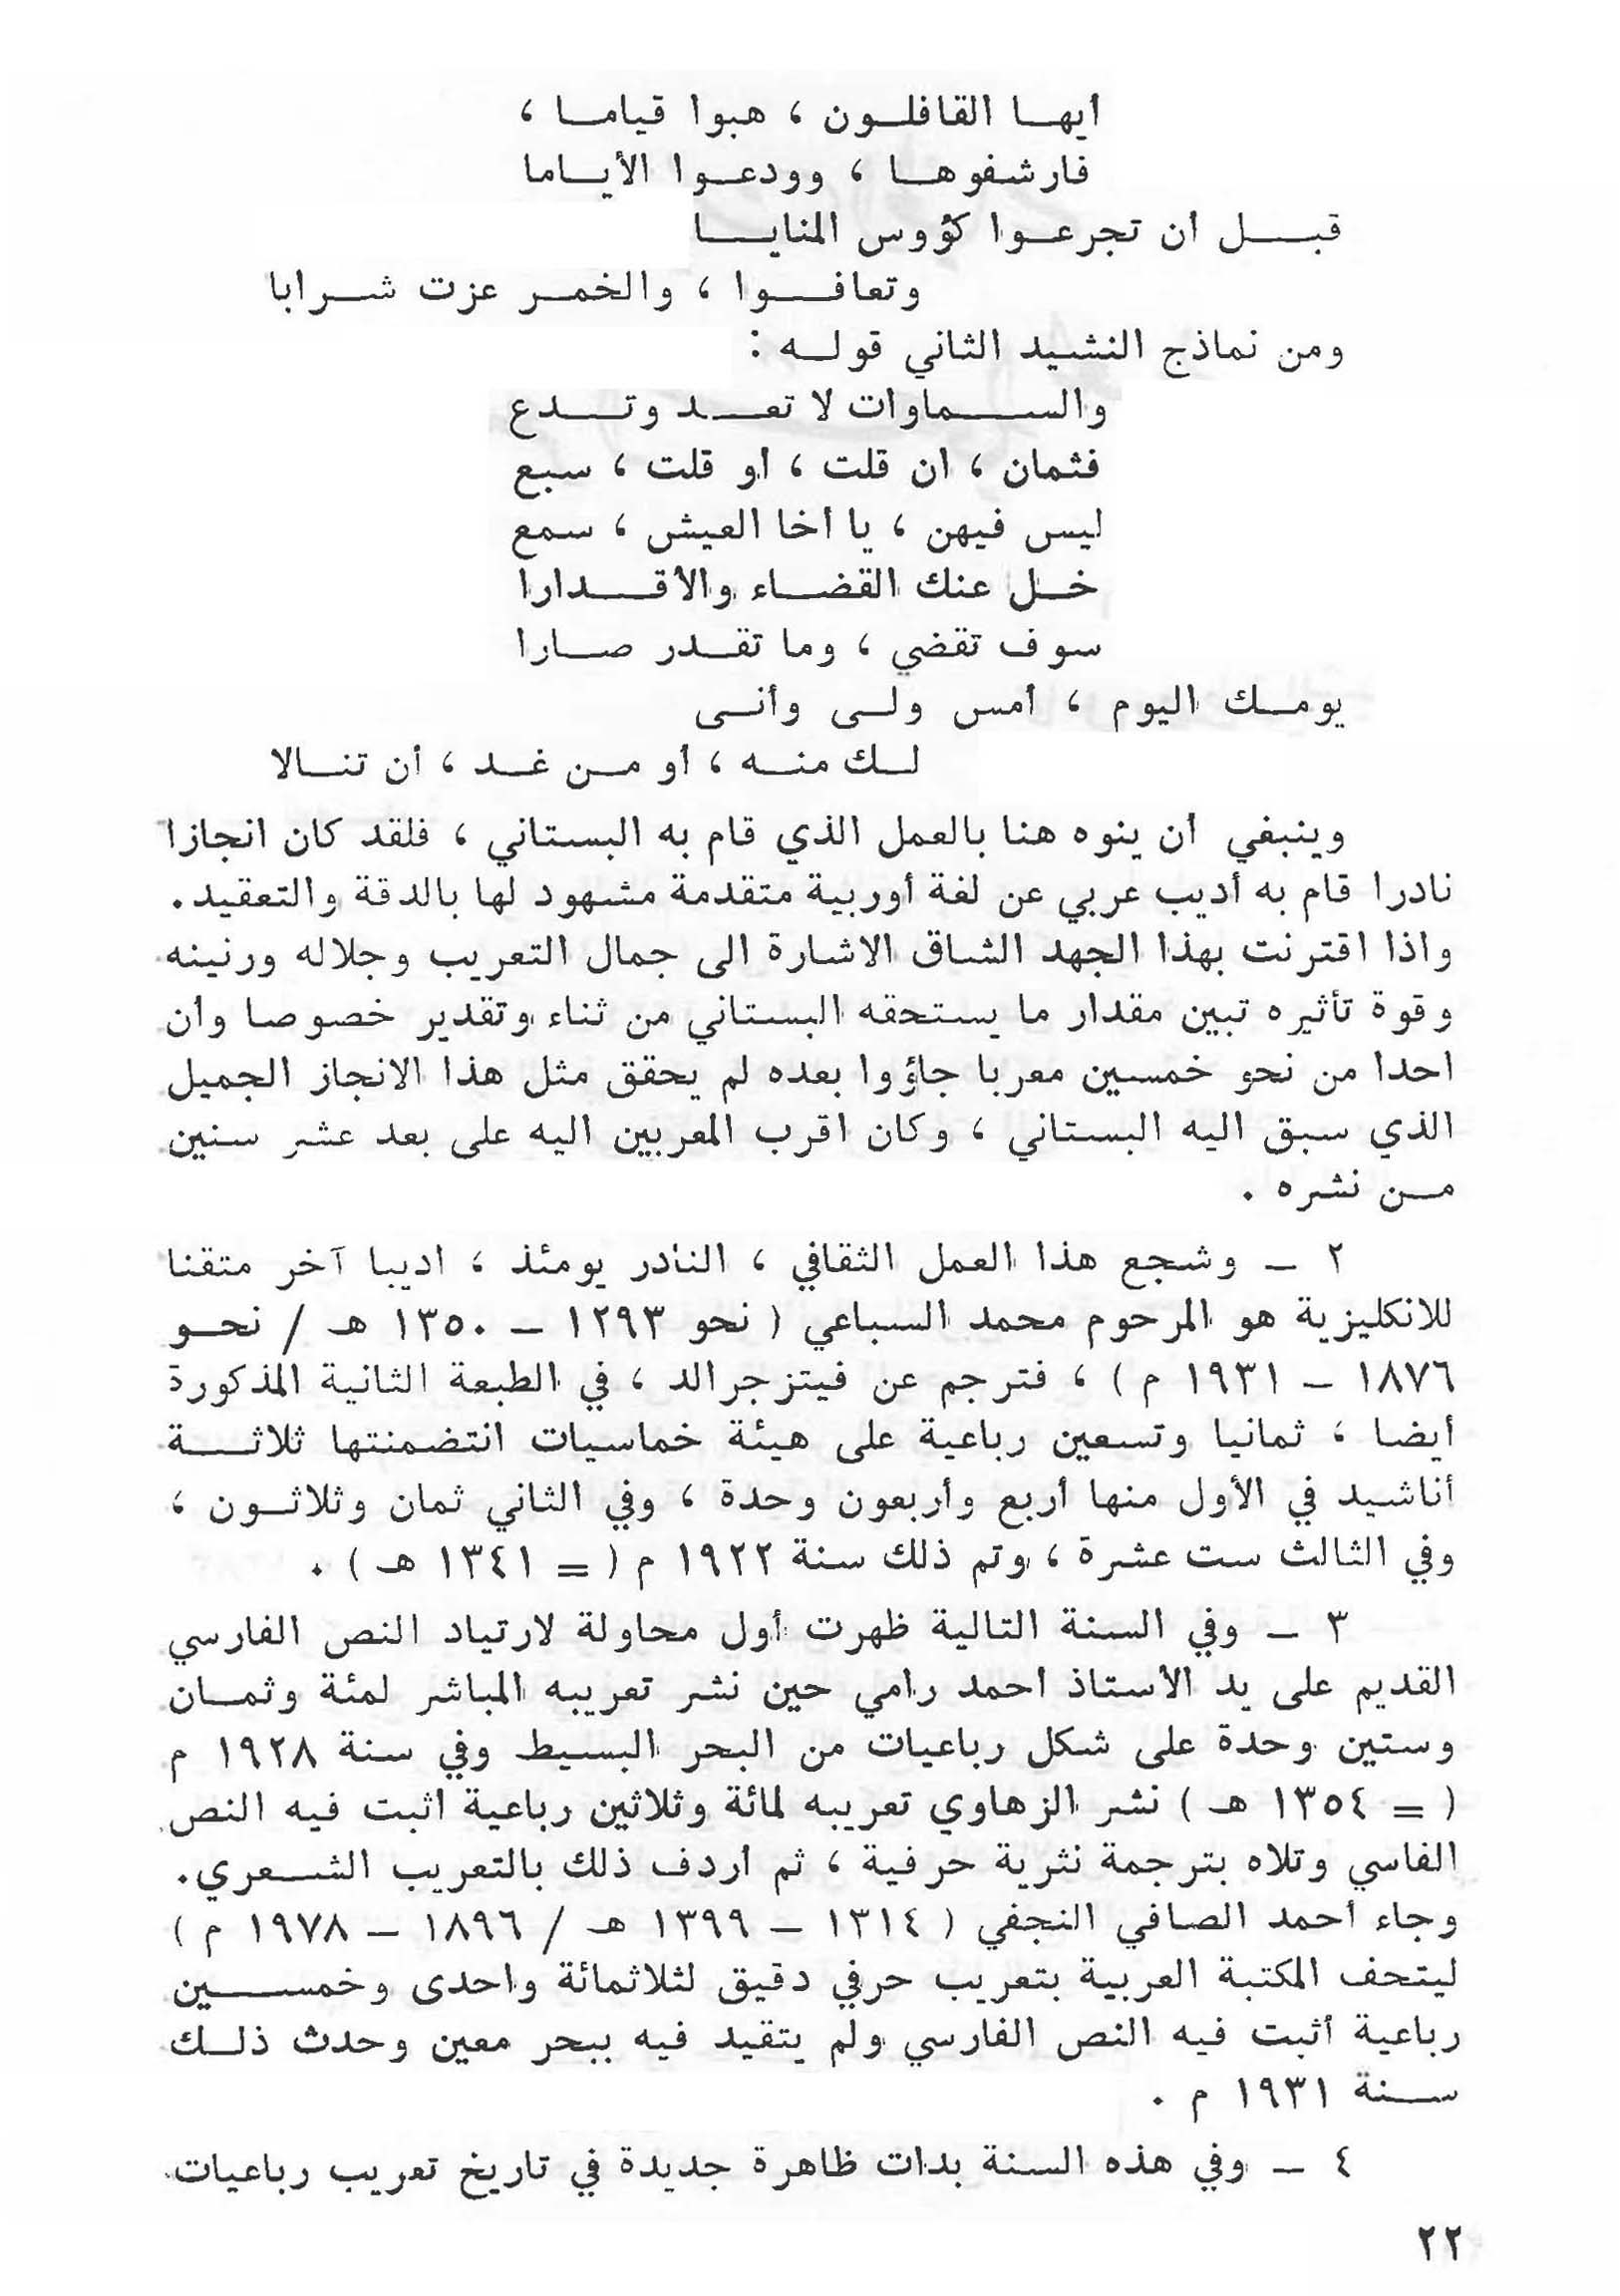 أيها القافلون ، هبوا قياما ،
فارشفوها ، وودعوا الأياما
قبل أن تجرعوا كؤوس المنايا
وتعافوا ، والخمر عزت شرابا
ومن نماذج النشيد الثاني قوله :
والسماوات لا تعد وتدع
فثمان ، ان قلت ، أو قلت ، سبع
ليس فيهن ، يا أخا العيش ، سمع
خل عنك القضاء والأقدارا
سوف تقضي ، وما تقدر صارا
يومك اليوم ، أمس ولى وأنى
لك منه ، أو من غد ، أن تنالا
وينبغي أن ينوه هنا بالعمل الذي قام به البستاني ، فلقد كان انجازا
نادرا قام به أديب عربي عن لغة أوربية متقدمة مشهود لها بالدقة والتعقيد.
واذا اقترنت بهذا الجهد الشاق الاشارة الى جمال التعريب وجلاله ورنينه
وقوة تأثيره تبين مقدار ما يستحقه البستاني من ثناء وتقدير خصوصا وأن
احدا من نحو خمسين معربا جاؤوا بعده لم يحقق مثل هذا الانجاز الجميل
الذي سبق اليه البستاني ، وكان اقرب المعربين اليه على بعد عشر سنين
من نشره .
٢ ـ وشجع هذا العمل الثقافي ، النادر يومئذ ، اديبا آخر متقنا
للانكليزية هو المرحوم محمد السباعي ( نحو ١٢٩٣ ـ ١٣٥٠ هـ / نحو
١٨٧٦ ـ ١٩٣١ م ) ، فترجم عن فيتزجرالد ، في الطبعة الثانية المذكورة
أيضا ، ثمانيا وتسعين رباعية على هيئة خماسيات انتضمنتها ثلاثة
أناشيد في الأول منها أربع وأربعون وحدة ، وفي الثاني ثمان وثلاثون ،
وفي الثالث ست عشرة ، وتم ذلك سنة ١٩٢٢ م ( = ١٣٤١ هـ ) .
٣ ـ وفي السنة التالية ظهرت أول محاولة لارتياد النص الفارسي
القديم على يد الأستاذ احمد رامي حين نشر تعريبه المباشر لمئة وثمان
وستين وحدة على شكل رباعيات من البحر البسيط وفي سنة ١٩٢٨ م
( = ١٣٥٤ هـ ) نشر الزهاوي تعريبه لمائة وثلاثين رباعية أثبت فيه النص
الفاسي وتلاه بترجمة نثرية حرفية ، ثم أردف ذلك بالتعريب الشعري.
وجاء أحمد الصافي النجفي ( ١٣١٤ ـ ١٣٩٩ هـ / ١٨٩٦ ـ ١٩٧٨ م )
ليتحف المكتبة العربية بتعريب حرفي دقيق لثلاثمائة واحدى وخمسين
رباعية أثبت فيه النص الفارسي ولم يتقيد فيه ببحر معين وحدث ذلك
سنة ١٩٣١ م .
٤ ـ وفي هذه السنة بدات ظاهرة جديدة في تاريخ تعريب رباعيات
٢٢